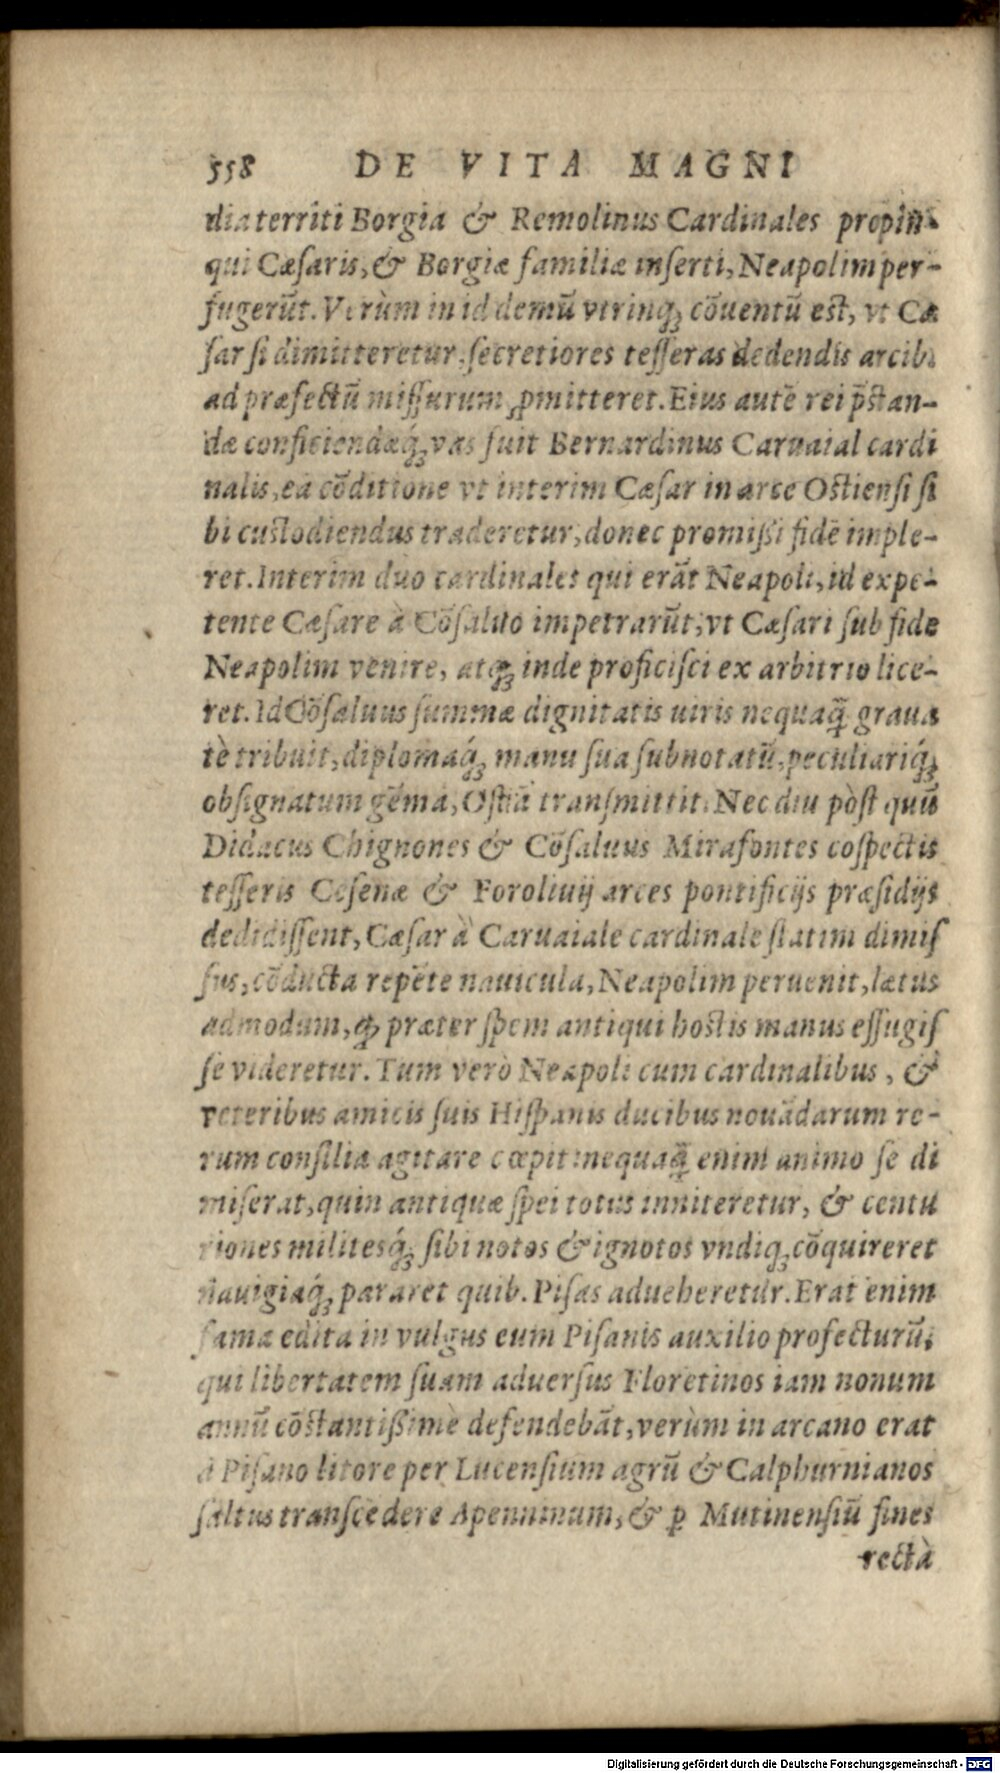 558 DE VITA MAGNI
dia territi Borgia & Remolinus Cardinales propin-
qui Cæsaris, & Borgiæ familiæ inserti, Neapolim per-
fugerūt. Verùm in id demū vtrinq; cōuentū est, vt Cæ
sar si dimitteretur, secretiores tesseras dedendis arcib.
ad præfectū missurum ꝓmitteret. Eius autē rei p̄stan-
dæ conficiendæq́; vas fuit Bernardinus Caruaial cardi
nalis, ea cōditione vt interim Cæsar in arce Ostiensi si
bi custodiendus traderetur, donec promißi fidē imple-
ret. Interim duo cardinales qui erāt Neapoli, id expe-
tente Cæsare à Cōsaluo impetrarūt, vt Cæsari sub fide
Neapolim venire, atq; inde proficisci ex arbitrio lice-
ret. Id Cōsaluus summæ dignitatis uiris nequaq̄ graua
tè tribuit, diplomaq́; manu sua subnotatū, peculiariq́;
obsignatum gēma, Ostiā transmittit. Nec diu pòst quū
Didacus Chignones & Cōsaluus Mirafontes cospectis
tesseris Cesenæ & Foroliuij arces pontificijs præsidijs
dedidissent, Cæsar à Caruaiale cardinale statim dimis
sus, cōducta repēte nauicula, Neapolim peruenit, lætus
admodum, ꝙ præter spem antiqui hostis manus effugis
se videretur. Tum verò Neapoli cum cardinalibus, &
veteribus amicis suis Hispanis ducibus nouādarum re-
rum consilia agitare cœpit: nequaq̄ enim animo se di
miserat, quin antiquæ spei totus inniteretur, & centu
riones militesq́; sibi notos & ignotos vndiq; cōquireret
nauigiaq́; pararet quib. Pisas adueheretur. Erat enim
fama edita in vulgus eum Pisanis auxilio profecturū,
qui libertatem suam aduersus Floretinos iam nonum
annū cōstantißimè defendebāt, verùm in arcano erat
à Pisano litore per Lucensium agrū & Calphurnianos
saltus transcēdere Apenninum, & ꝑ Mutinensiū fines
rectà
Digitalisierung gefördert durch die Deutsche Forschungsgemeinschaft - DFG